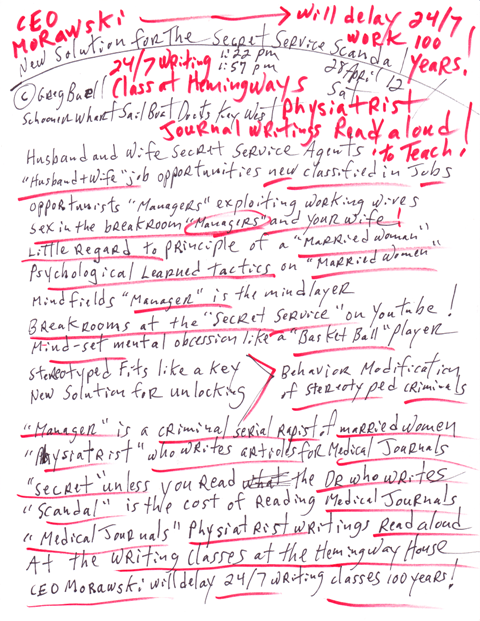 CEO MORAWSKI → will delay 24/7
WORK 100 YEARS!
New Solution for The Secret Service Scandal
24/7 Writing 1:22 pm
1:57 pm
28 April 12
Sat
© Greg Buell Class at Hemingways
Schooner Wharf Sail Boat Docks Key West
→ Physiatrist
Journal Writings Read aloud
to Teach!
Husband and Wife Secret Service Agents
"Husband + Wife" job opportunities new classified in Jobs
opportunists "Managers" exploiting working wives
sex in the breakroom "Managers" and your wife!
Little Regard to principle of a "Married Woman"
Psychological Learned tactics on "Married Women"
Mindfields "Manager" is the mindlayer
Breakrooms at the "Secret Service" on Youtube!
Mind-set mental obcession like a "Basket Ball" player
Stereotyped Fits like a key
New Solution for unlocking
Behavior Modification
of stereotyped criminals
"Manager" is a criminal serial rapist of married women
"Physiatrist" who writes articles for Medical Journals
"Secret" unless you Read the DR who writes
"Scandal" is the cost of Reading Medical Journals
"Medical Journals" Physiatrist writings Read aloud
At the writing classes at the Hemingway House
CEO Morawski will delay 24/7 writing classes 100 years!